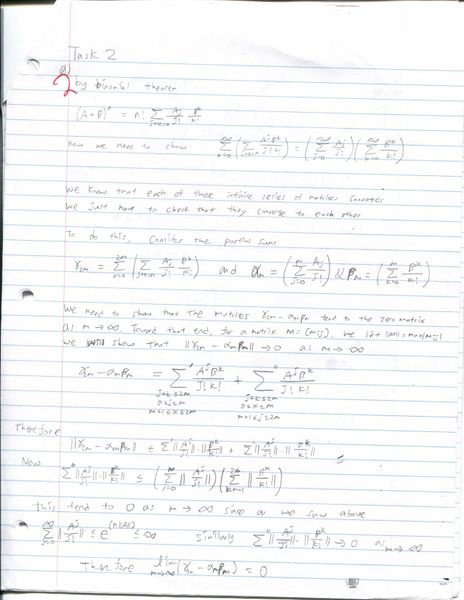 Task 2
a)
2 by binomial theorem
(A+B)^n = n! Σ_{j+k=n} A^j/j! B^k/k!
now we need to show Σ_{n=0}^∞ (Σ_{j+k=n} A^j B^k / j! k!) = (Σ_{j=0}^∞ A^j/j!) (Σ_{k=0}^∞ B^k/k!)
we know that each of these infinite series of matrices converges
we just have to check that they converge to each other
To do this, consider the partial sums
γ_{2m} = Σ_{n=0}^{2m} (Σ_{j+k=n} A^j/j! B^k/k!) and α_m = (Σ_{j=0}^m A^j/j!) & β_m = (Σ_{k=0}^m B^k/k!)
we need to show that the matrices γ_{2m} - α_m β_m tend to the zero matrix
as m → ∞. Toward that end, for a matrix M = [m_{ij}], we let ||M|| = max|m_{ij}|
we will show that ||γ_{2m} - α_m β_m|| → 0 as m → ∞
γ_{2m} - α_m β_m = Σ' A^j B^k / j! k! + Σ'' A^j B^k / j! k!
j+k≤2m j+k≤2m
0≤j≤m 0≤k≤m
m+1≤k≤2m m+1≤j≤2m
Therefore
||γ_{2m} - α_m β_m|| ≤ Σ' ||A^j/j!|| · ||B^k/k!|| + Σ'' ||A^j/j!|| · ||B^k/k!|| ≤
Now
Σ'' ||A^j/j!|| · ||B^k/k!|| ≤ (Σ_{j=0}^m ||A^j/j!||) (Σ_{k=m+1}^{2m} ||B^k/k!||)
this tend to 0 as m → ∞ since as we saw above
Σ_{j=0}^∞ ||A^j/j!|| ≤ e^{(n||A||)} ≤ ∞ similarly Σ'' ||A^j/j!|| · ||B^k/k!|| → 0 as m → ∞
Therefore lim_{m→∞} (γ_{2m} - α_m β_m) = 0